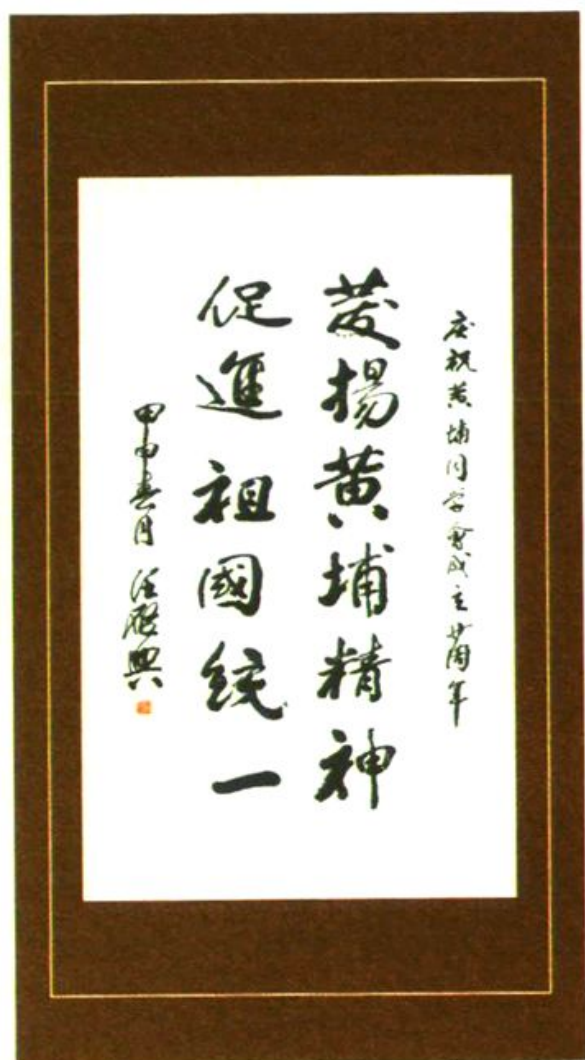 庆祝黄埔同学會成立廿周年
發揚黄埔精神
促進祖國統一
甲申春月 汪啟興